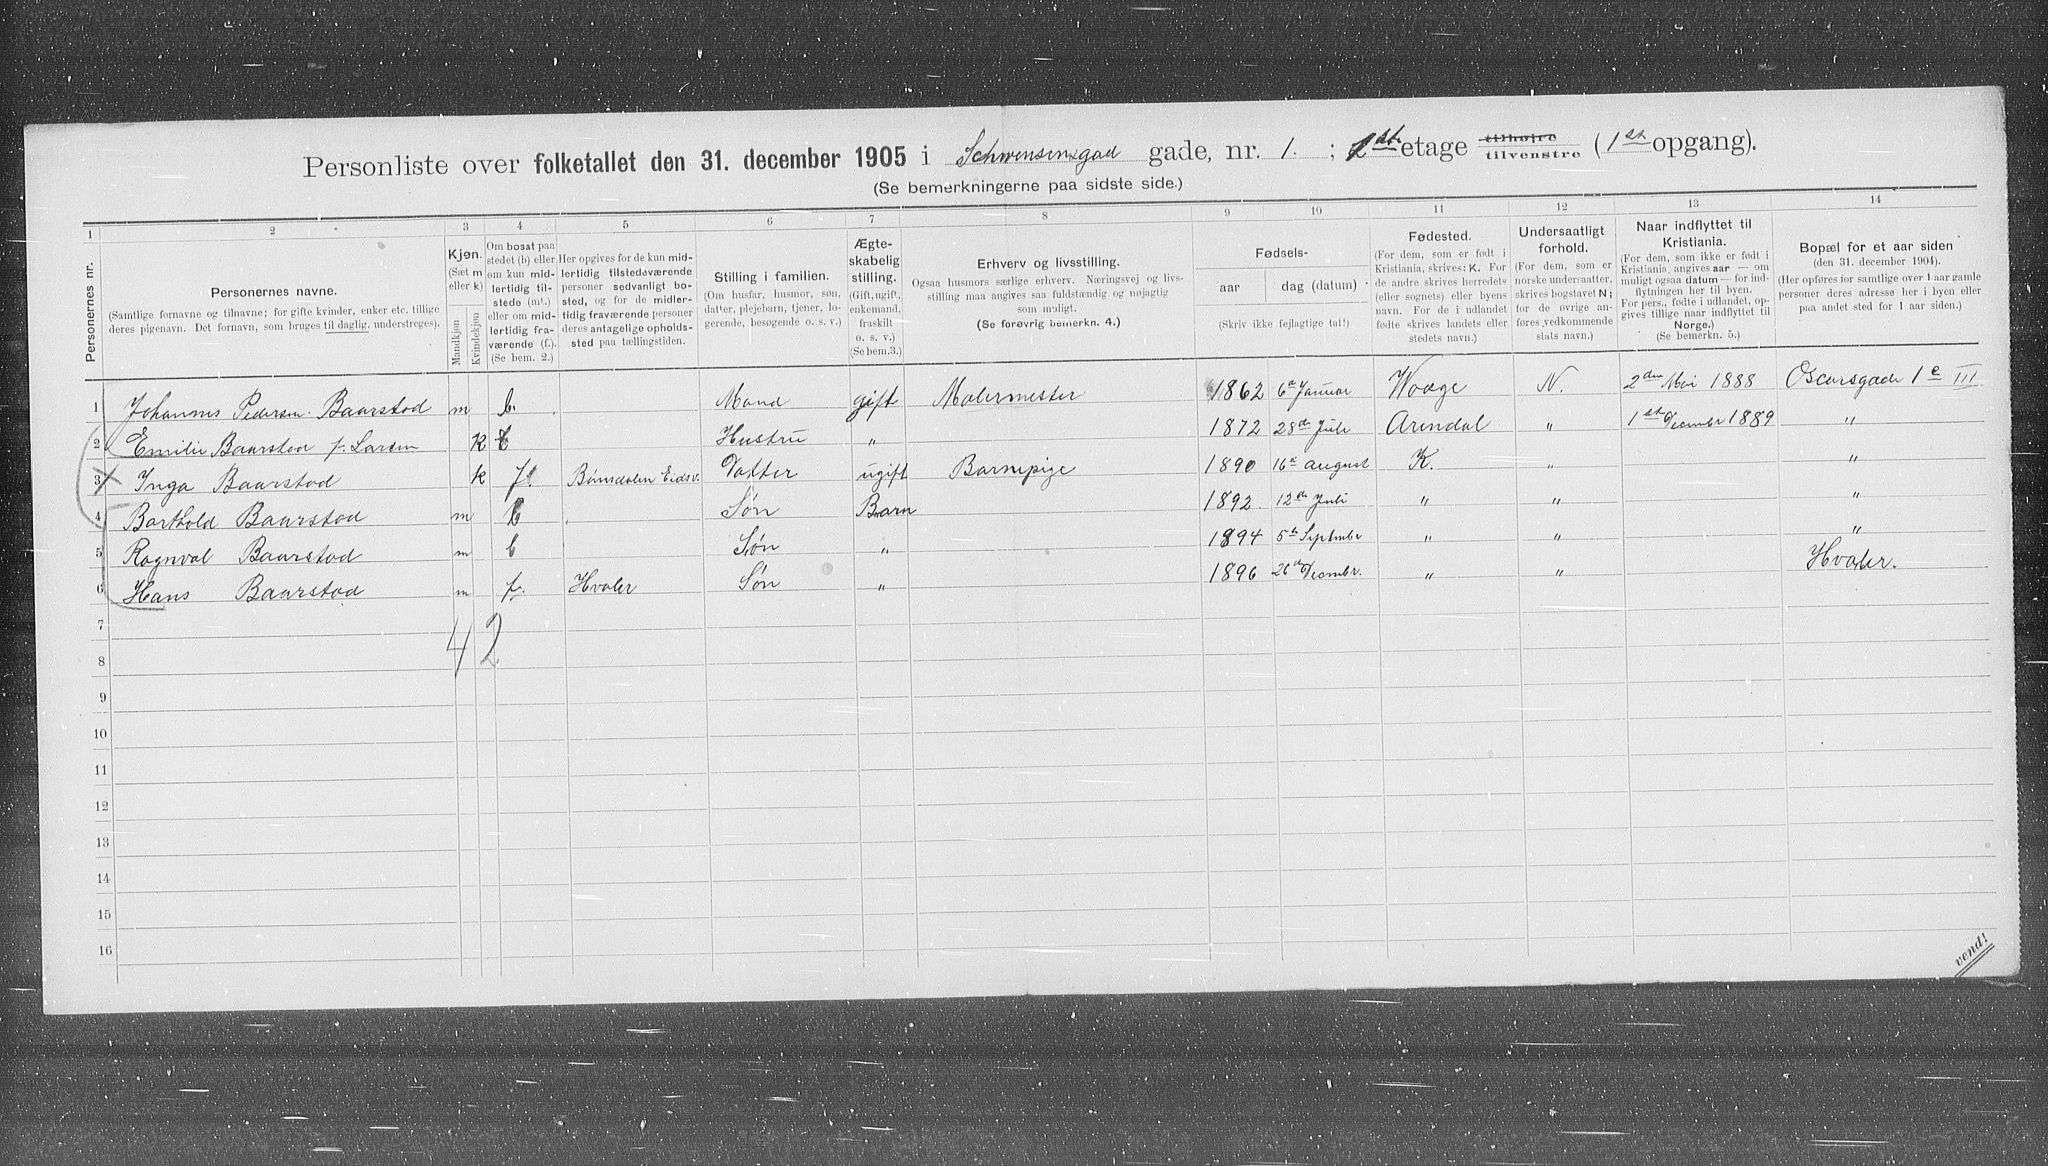 Personliste over folketallet den 31. december 1905 i Schwensensgad gade, nr. 1. ; 1st etage tilhøjre tilvenstre (1st opgang).
(Se bemerkningerne paa sidste side.)
1 2 3 4 5 6 7 8 9 10 11 12 13 14
Personernes nr.
Personernes navne.
(Samtlige fornavne og tilnavne; for gifte kvinder, enker etc. tillige deres pigenavn. Det fornavn, som bruges til daglig, understreges).
Kjøn. (Sæt m eller k)
Mandkjøn Kvindekjøn
Om bosat paa stedet (b) eller om kun midlertidig tilstede (mt.) eller om midlertidig fraværende (f.). (Se bem. 2.)
Her opgives for de kun midlertidig tilstedeværende personer sedvanligt bosted, og for de midlertidig fraværende personer deres antagelige opholdssted paa tællingstiden.
Stilling i familien.
(Om husfar, husmor, søn, datter, plejebarn, tjener, logerende, besøgende o. s. v.)
Ægteskabelig stilling.
(Gift, ugift, enkemand, fraskilt o. s. v.) (Se bem.3.)
Erhverv og livsstilling.
Ogsaa husmors særlige erhverv. Næringsvej og livsstilling maa angives saa fuldstændig og nøjagtig som muligt.
(Se forøvrig bemerkn. 4.)
Fødsels-
aar dag (datum)
(Skriv ikke fejlagtige tal!)
Fødested.
(For dem, som er født i Kristiania, skrives: K. For de andre skrives herredets (eller sognets) eller byens navn. For de i udlandet fødte skrives landets eller stedets navn.)
Undersaatligt forhold.
(For dem, som er norske undersaatter, skrives bogstavet N; for de øvrige anføres vedkommende stats navn.)
Naar indflyttet til Kristiania.
(For dem, som ikke er født i Kristiania, angives aar — om muligt ogsaa datum — for indflytningen her til byen. For pers., fødte i udlandet, opgives tillige naar indflyttet til Norge.)
(Se bemerkn. 5.)
Bopæl for et aar siden
(den 31. december 1904).
(Her opføres for samtlige over 1 aar gamle personer deres adresse her i byen eller paa andet sted for 1 aar siden.)
1 Johannes Pedersen Baarstad m b. Mand gift Malermester 1862 6te Januar Waage N. 2den Mai 1888 Oscarsgade 1e III
2 Emilie Baarstad f. Larsen K b Hustru " 1872 28de Juli Arendal " 1st Decembr 1889 "
3 X Inga Baarstad k f. Bønsdalen Eidsv. Datter ugift Barnepige 1890 16de august K. " "
4 Barthold Baarstad m b Søn Barn 1892. 12de Juli " " "
5 Ragnval Baarstad m b Søn " 1894 5th Septembr " " "
6 Hans Baarstad m f. Hvaler Søn " 1896 26de Decembr. " " Hvaler.
7
4 2
8
9
10
11
12
13
14
15
16
vend!